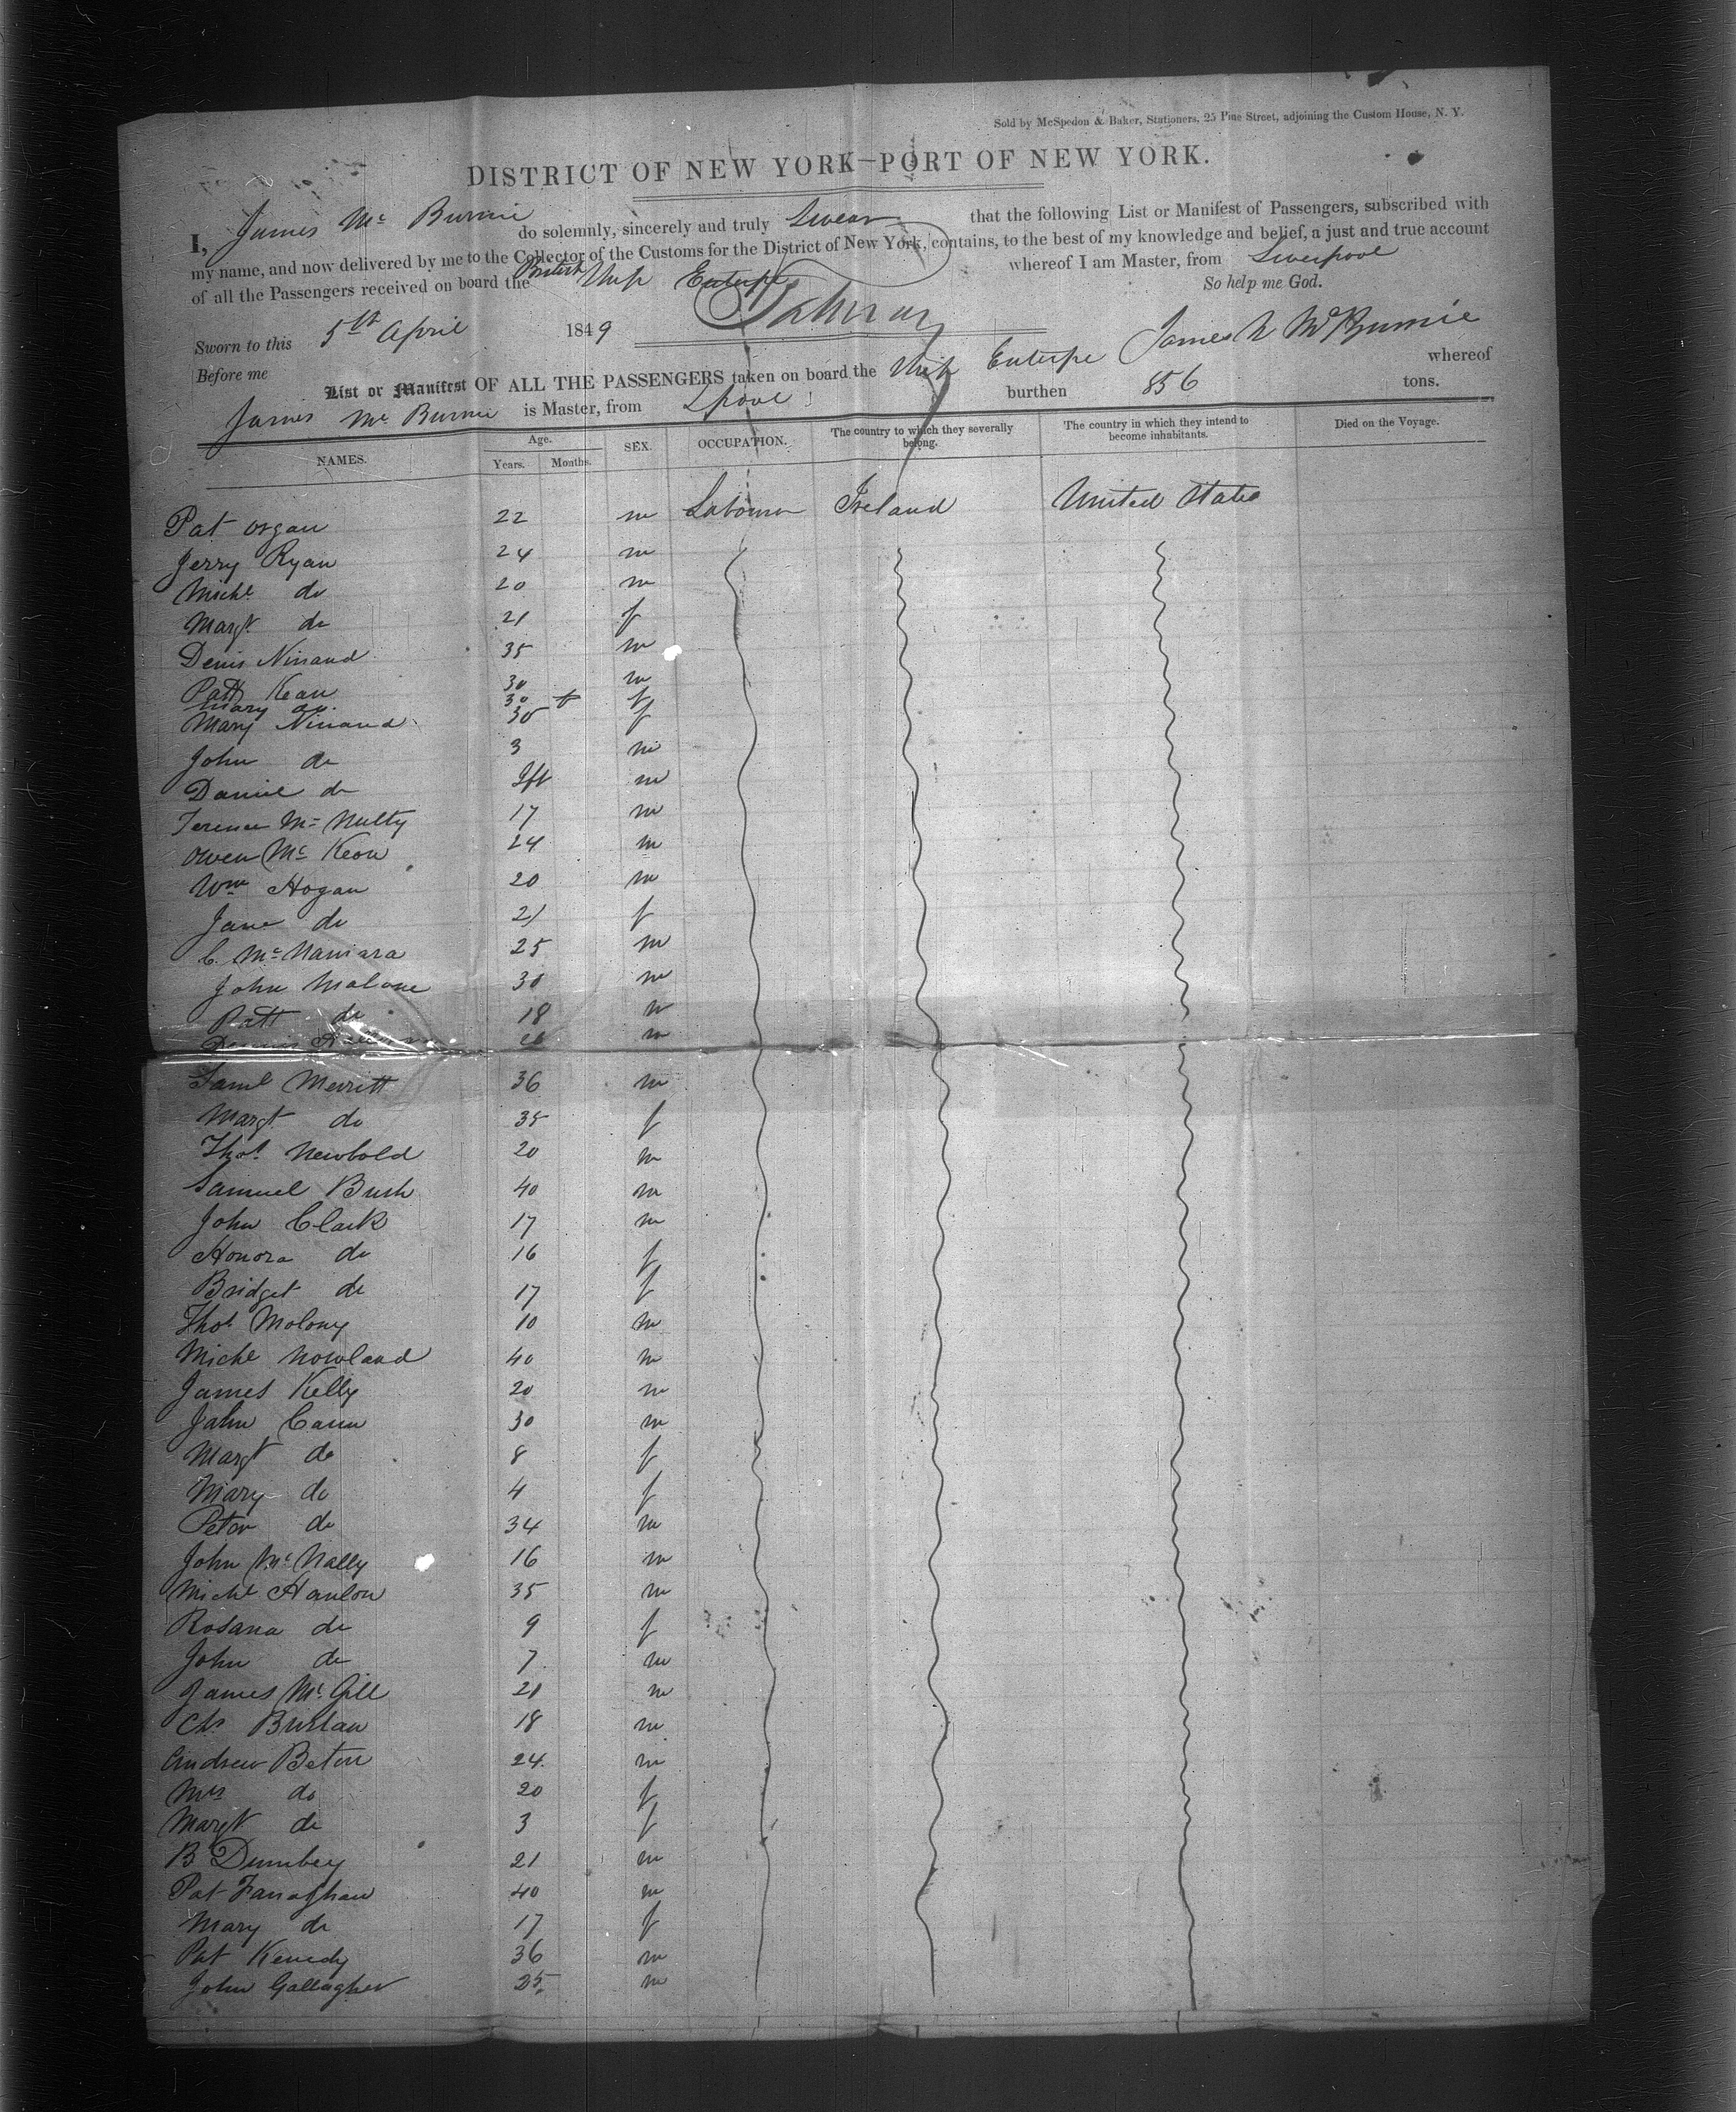 Sold by McSpedon & Baker, Stationers, 25 Pine Street, adjoining the Custom House, N. Y.
DISTRICT OF NEW YORK—PORT OF NEW YORK.
I, James Mc Burnie do solemnly, sincerely and truly Swear that the following List or Manifest of Passengers, subscribed with
my name, and now delivered by me to the Collector of the Customs for the District of New York, contains, to the best of my knowledge and belief, a just and true account
of all the Passengers received on board the British Ship Euterpe whereof I am Master, from Liverpool
So help me God.
Sworn to this 5th April 1849 James McBurnie
Before me
List or Manifest OF ALL THE PASSENGERS taken on board the Ship Euterpe whereof
James Mc Burnie is Master, from Lpool burthen 856 tons.
NAMES. Age. Years. Months. SEX. OCCUPATION. The country to which they severally belong. The country in which they intend to become inhabitants. Died on the Voyage.
Pat Organ 22 m Labourer Ireland United States
Jerry Ryan 24 m
Michl do 20 m
Margt do 21 f
Denis Ninand 35 m
Patt Kean 30 m
Mary do 30 f
Mary Ninand 30 f
John do 3 m
Daniel do Ift m
Terence Mc Nulty 17 m
Owen Mc Keon 24 m
Wm Hogan 20 m
Jane do 21 f
C. Mc Namara 25 m
John Malone 30 m
Patt do 18 m
Dennis 20 m
Saml Merritt 36 m
Margt do 35 f
Thos Newbold 20 m
Samuel Bush 40 m
John Clark 17 m
Honora do 16 f
Bridget do 17 f
Thos Molony 10 m
Michl Nowland 40 m
James Kelly 20 m
John Cann 30 m
Margt do 8 f
Mary do 4 f
Peter do 34 m
John Mc Nally 16 m
Michl Hanlon 35 m
Rosana do 9 f
John do 7 m
James Mc Gill 21 m
Chs Burlan 18 m
Andrew Beton 24 m
Mrs do 20 f
Margt do 3 f
B Dumbey 21 m
Pat Fanaghan 40 m
Mary do 17 f
Pat Kenedy 36 m
John Gallagher 25 m